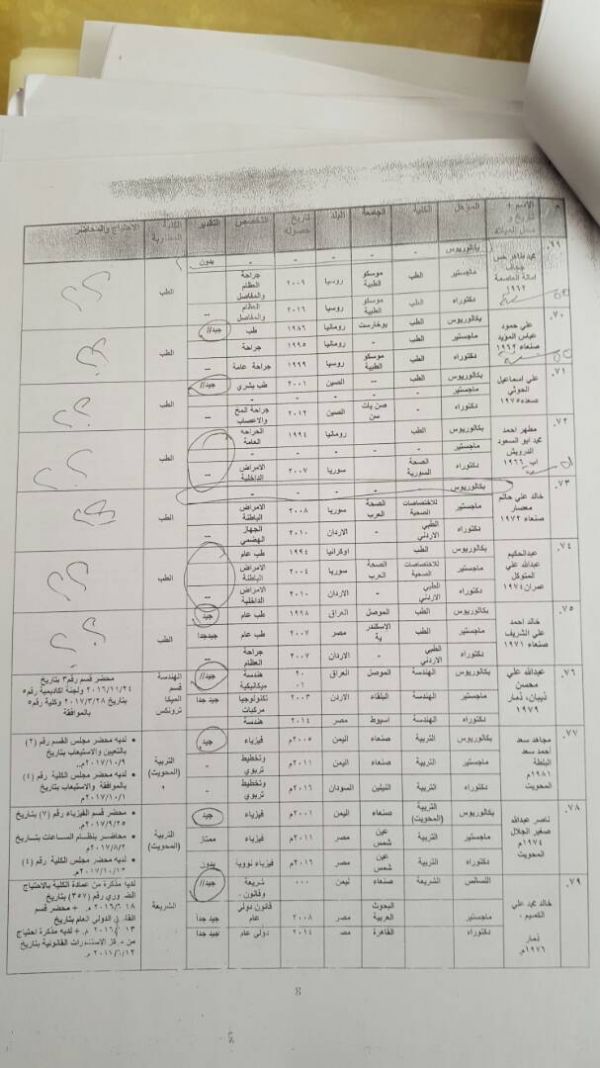 م | الاسم + تاريخ و محل الميلاد | المؤهل | الكلية | الجامعة | البلد | تاريخ حصوله | التخصص | التقدير | الكلية | الاحتياج والمحاضر
٦٩. | محمد طاهر حسن أمانة العاصمة ١٩٦٢ | بكالوريوس | - | - | - | - | - | بدون | الطب
ماجستير | الطب | موسكو الطبية | روسيا | ٢٠٠٩ | جراحة العظام والمفاصل
دكتوراه | الطب | موسكو الطبية | روسيا | ٢٠١٦ | العظام والمفاصل | --
٧٠. | علي حمود عباس المؤيد صنعاء ١٩٦٢ | بكالوريوس | الطب | بوخارست | رومانيا | ١٩٨٦ | طب | جيد// | الطب
ماجستير | الطب | - | رومانيا | ١٩٩٥ | جراحة
دكتوراه | الطب | موسكو الطبية | روسيا | ١٩٩٩ | جراحة عامة | --
٧١. | علي اسماعيل الحوثي صعده ١٩٧٥ | بكالوريوس | الطب | -- | الصين | ٢٠٠١ | طب بشري | جيد// | الطب
ماجستير | - | - | - | - | -
دكتوراه | الطب | صن يات سن | الصين | ٢٠١٢ | جراحة المخ والاعصاب | --
٧٢. | مطهر احمد محمد ابو السعود الدرويش اب ١٩٦٦ | بكالوريوس | الطب | رومانيا | ١٩٩٤ | الجراحه العامة | الطب
ماجستير | - | - | - | - | -
دكتوراه | الصحة السورية | سوريا | ٢٠٠٧ | الامراض الداخلية | --
٧٣. | خالد علي حاتم معصار صنعاء ١٩٧٢ | بكالوريوس | - | - | - | - | - | الطب
ماجستير | للاختصاصات الصحية | الصحة العرب | سوريا | ٢٠٠٨ | الامراض الباطنة
دكتوراه | الطبي الاردني | - | الاردن | ٢٠١٠ | الجهاز الهضمي
٧٤. | عبدالحكيم عبدالله علي المتوكل عمران ١٩٧٤ | بكالوريوس | الطب | اوكرانيا | ١٩٩٤ | طب عام | الطب
ماجستير | للاختصاصات الصحية | الصحة العرب | سوريا | ٢٠٠٤ | الامراض الباطنة
دكتوراه | الطبي الاردني | - | الاردن | ٢٠١٠ | الامراض الداخلية | --
٧٥. | خالد احمد علي الشريف صنعاء ١٩٧١ | بكالوريوس | الطب | الموصل | العراق | ١٩٩٨ | طب عام | جيد | الطب
ماجستير | الطب | الاسكندرية | مصر | ٢٠٠٧ | طب عام | جيدجدا
دكتوراه | الطبي الاردني | - | الاردن | ٢٠٠٧ | جراحة العظام | --
٧٦. | عبدالله علي محسن ذيبان، ذمار ١٩٧٩ | بكالوريوس | الهندسة | الموصل | العراق | هندسة ميكانيكية | جيد// | الهندسة قسم الميكاترونكس | محضر قسم رقم٣ بتاريخ ٢٠١٦/١١/٢٤ ولجنة اكاديمية رقم٥ بتاريخ ٢٠١٧/٣/٢٨ وكلية رقم٥ بالموافقة
ماجستير | الهندسة | البلقاء | الاردن | ٢٠٠٣ | تكنولوجيا مركبات | جيد جدا
دكتوراه | الهندسة | اسيوط | مصر | ٢٠١٤ | هندسة
٧٧. | مجاهد سعد احمد سعد ١٩٨١م المحويت | بكالوريوس | التربية | صنعاء | اليمن | ٢٠٠٥م | فيزياء | جيد | التربية (المحويت) | • لديه محضر مجلس القسم رقم (٢) بالتعيين والاستيعاب بتاريخ ٢٠١٧/١٠/٩م..
ماجستير | التربية | صنعاء | اليمن | ٢٠١١م | وتخطيط تربوي | - | • لديه محضر مجلس الكلية رقم (٤) بالموافقة والاستيعاب بتاريخ ٢٠١٧/١٠/١م
دكتوراه | التربية | النيلين | السودان | ٢٠١٦م | وتخطيط تربوي | -
٧٨. | ناصر عبدالله صغير الجلال ١٩٧٤م المحويت | بكالوريوس | التربية (المحويت) | صنعاء | اليمن | ٢٠٠١م | فيزياء | جيد | التربية (المحويت) | • محضر قسم الفيزياء رقم (٧) بتاريخ ٢٠١٧/٩/٢٥م
ماجستير | التربية | عين شمس | مصر | ٢٠١١م | فيزياء | ممتاز | • محاضر بنظام الساعات بتاريخ ٢٠١٧/٨/٢م
دكتوراه | التربية | عين شمس | مصر | ٢٠١٦م | فيزياء نووية | بدون | • لديه محضر مجلس الكلية رقم (٤) ٢٠١٧/١٠/١٢م
٧٩. | خالد محمد علي ذمار ١٩٧٦م | الشريعة | صنعاء | شريعة وقانون | جيد// | الشريعة | لديه مذكرة من عمادة الكلية بالاحتياج رقم (٣٥٧) بتاريخ
ماجستير | البحوث العربية | مصر | ٢٠٠٨ | قانون دولي عام | جيد جدا | محضر قسم الدولي العام بتاريخ
دكتوراه | القاهرة | مصر | ٢٠١٤ | دولي عام | جيد جدا | لديه مذكرة احتياج القانونية بتاريخ
8